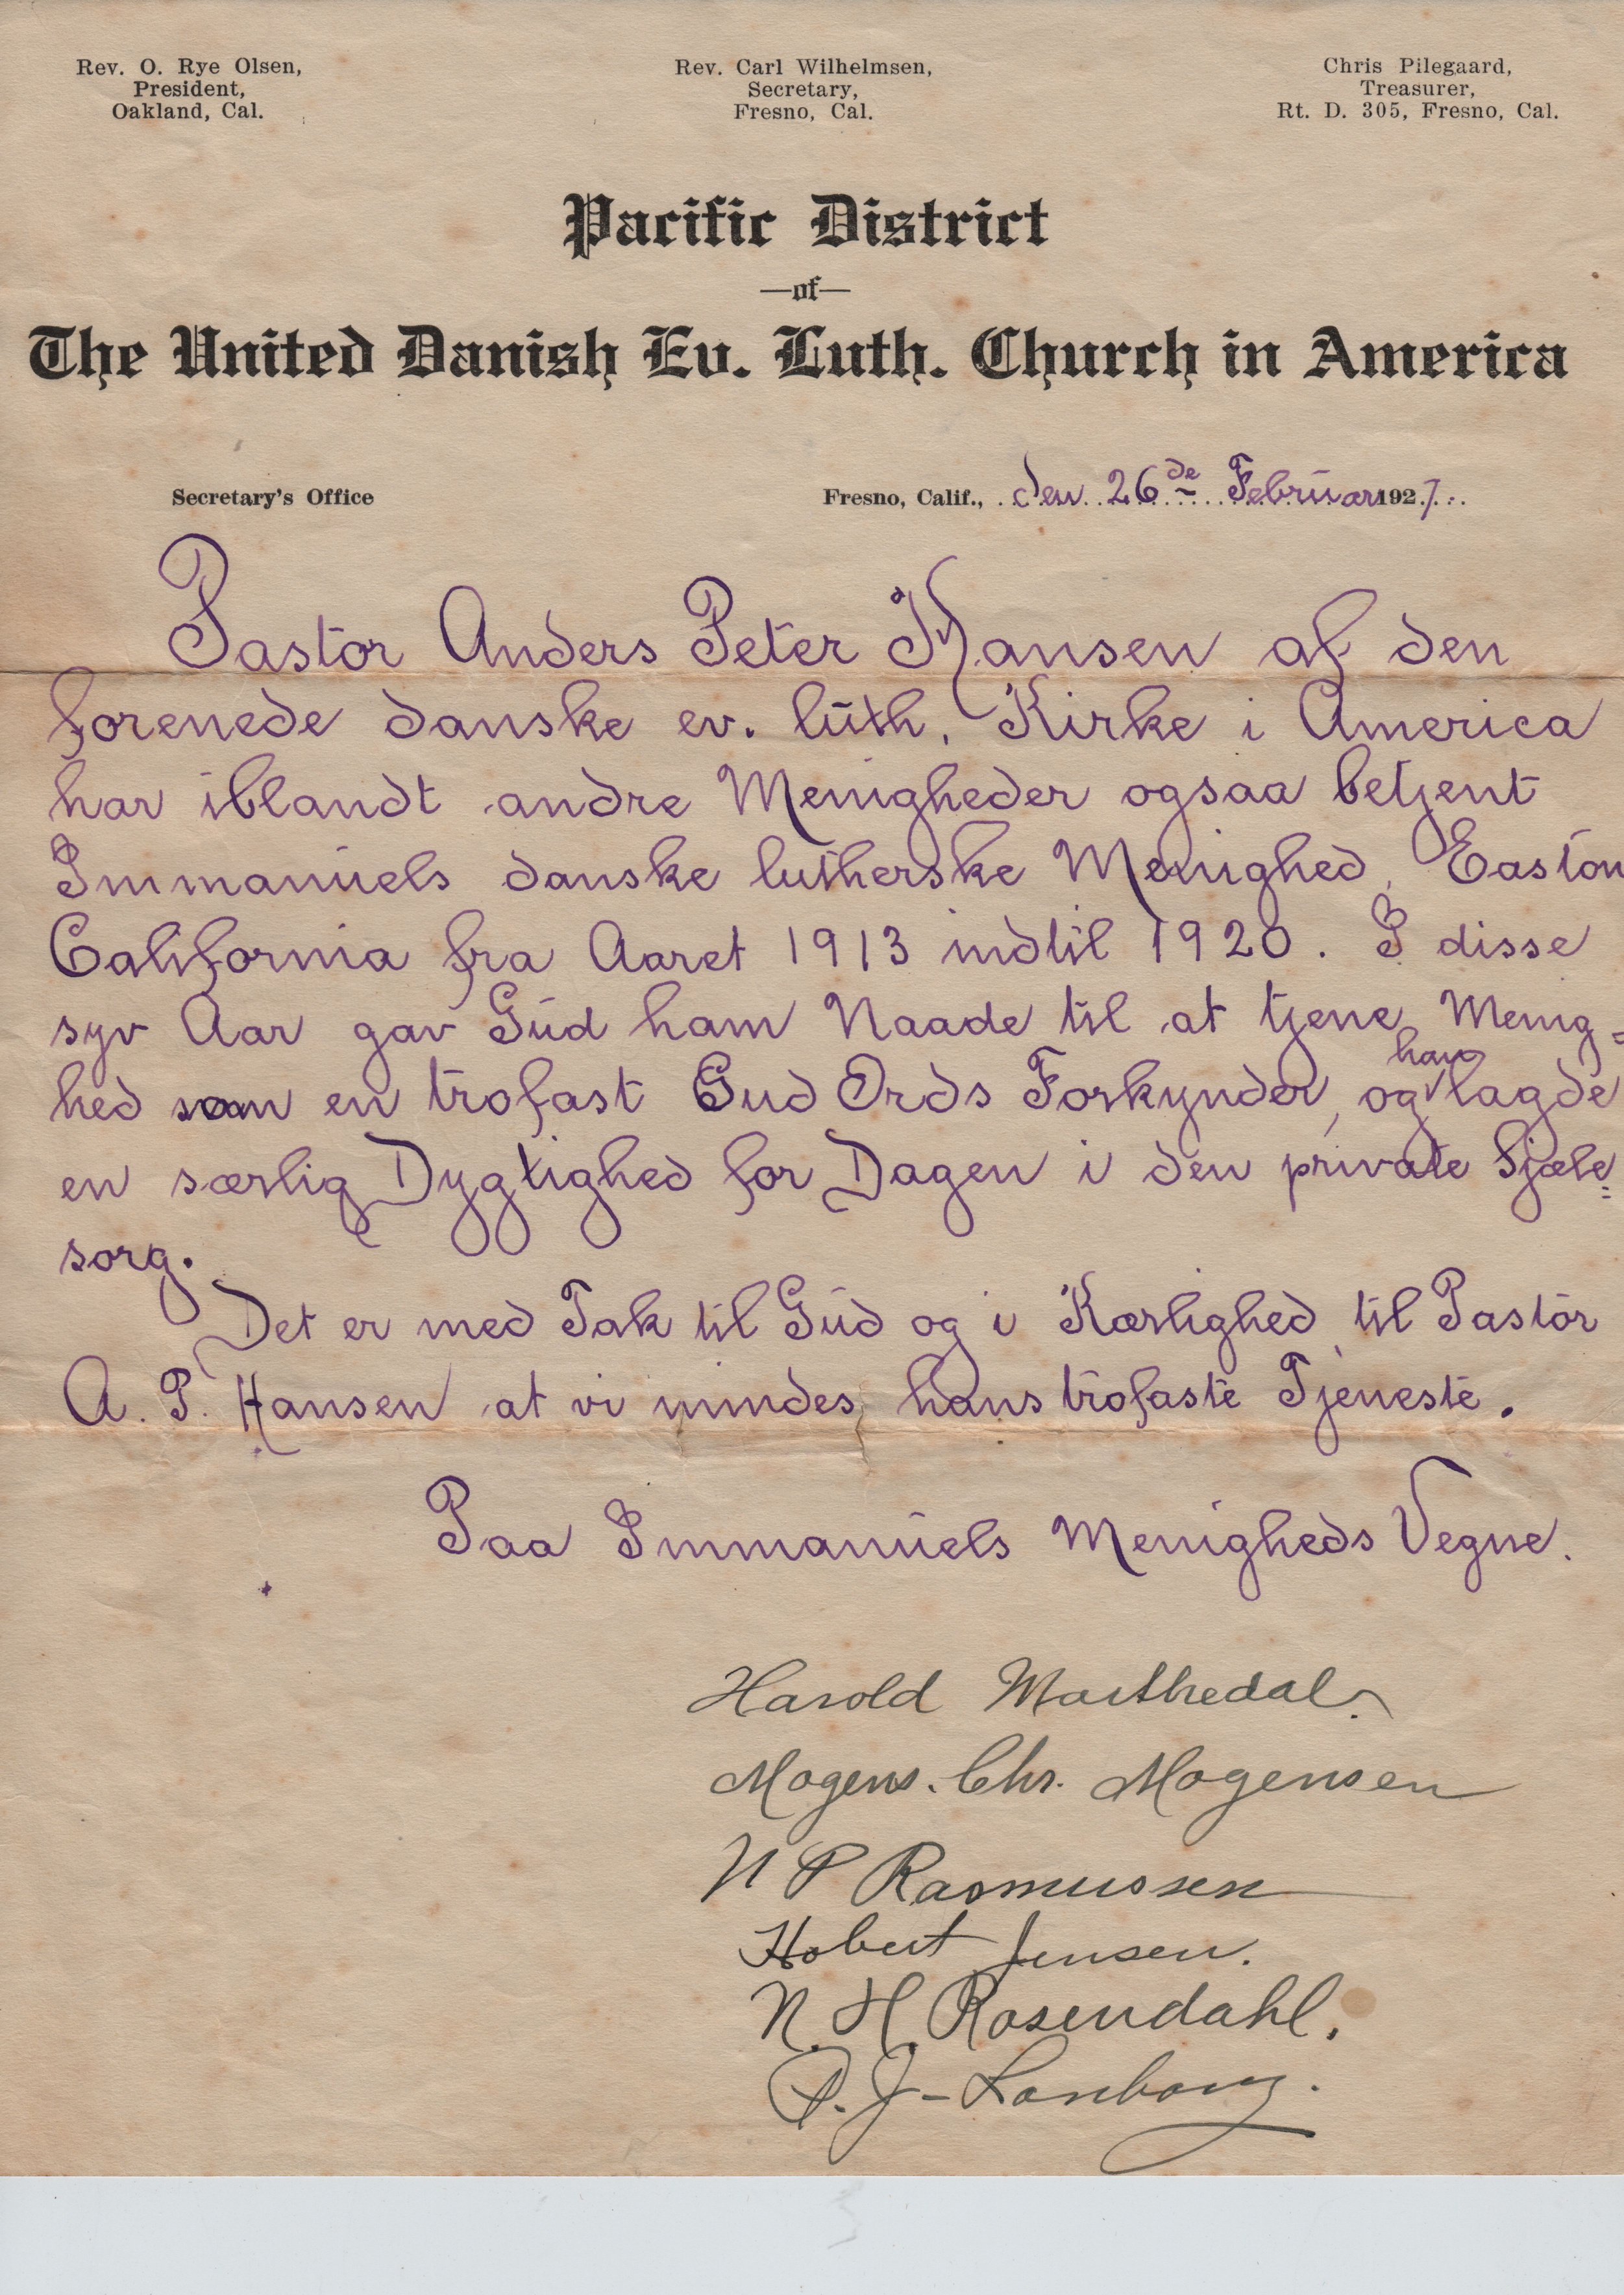 Rev. O. Rye Olsen,
President,
Oakland, Cal.
Rev. Carl Wilhelmsen,
Secretary,
Fresno, Cal.
Chris Pilegaard,
Treasurer,
Rt. D. 305, Fresno, Cal.
Pacific District
—of—
The United Danish Ev. Luth. Church in America
Secretary's Office
Fresno, Calif., den 26de Februar 1927
Pastor Anders Peter Hansen af den
forenede danske ev. luth. Kirke i America
har iblandt andre Menigheder ogsaa betjent
Immanuels danske lutherske Menighed, Easton
California fra Aaret 1913 indtil 1920. I disse
syv Aar gav Gud ham Naade til at tjene Menig-
hed som en trofast Gud Ords Forkynder, og han lagde
en særlig Dygtighed for Dagen i den private Sjæle=
sorg.
Det er med Tak til Gud og i Kærlighed til Pastor
A. P. Hansen at vi mindes hans trofaste Tjeneste.
Paa Immanuels Menigheds Vegne.
Harold Marthedal.
Mogens. Chr. Mogensen
N P Rasmussen
Hobert Jensen.
N. H. Rosendahl.
P. J-